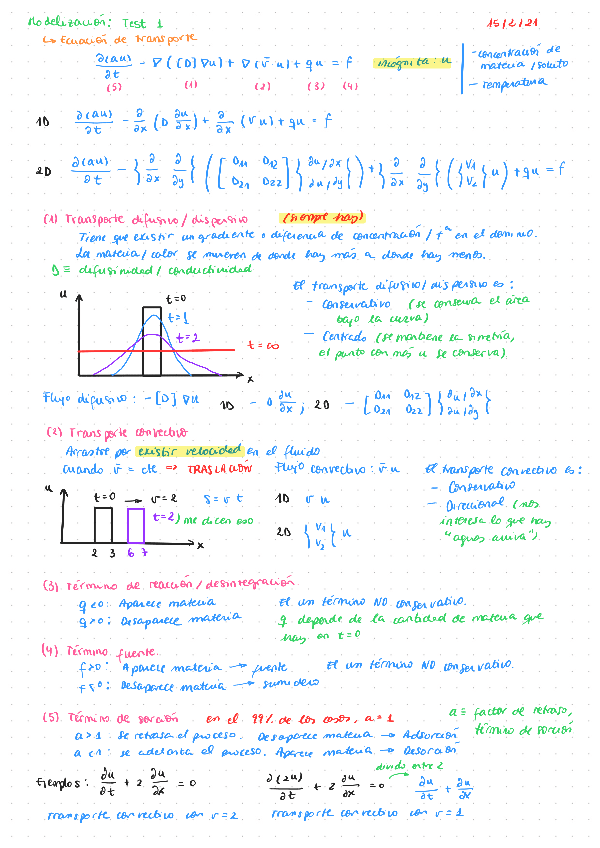 Modelización: Test 1 15/2/21
↳ Ecuación de transporte
∂(au)/∂t - ∇([D]∇u) + ∇(v̄·u) + qu = f incógnita: u
- concentración de materia / soluto
- temperatura
(5) (1) (2) (3) (4)
1D ∂(au)/∂t - ∂/∂x (D ∂u/∂x) + ∂/∂x (v u) + qu = f
2D ∂(au)/∂t - {∂/∂x ∂/∂y} ([D11 D12 D21 D22] {∂u/∂x ∂u/∂y}) + {∂/∂x ∂/∂y} ({v1 v2} u) + qu = f
(1) Transporte difusivo / dispersivo (siempre hay)
Tiene que existir un gradiente o diferencia de concentración / tª en el dominio.
La materia/calor se mueren de donde hay más a donde hay menos.
D ≡ difusividad / conductividad
u t=0
t=1
t=2
t=∞
x
El transporte difusivo/dispersivo es:
- Conservativo (se conserva el área
bajo la curva)
- Centrado (se mantiene la simetría,
el punto con más u se conserva)
Flujo difusivo: -[D] ∇u 1D - D ∂u/∂x ; 2D - [D11 D12 D21 D22] {∂u/∂x ∂u/∂y}
(2) Transporte convectivo
Arrastre por existir velocidad en el fluido
Cuando v̄ = cte => TRASLACIÓN Flujo convectivo: v̄ u
u t=0 → v=2 s = v t
t=2) me dicen eso
2 3 6 7 x
1D v u
2D {v1 v2} u
El transporte convectivo es:
- Conservativo
- Direccional (nos
interesa lo que hay
"aguas arriba")
(3) Término de reacción / desintegración
q<0: Aparece materia Es un término NO conservativo.
q>0: Desaparece materia q depende de la cantidad de materia que
hay en t=0
(4) Término fuente.
f>0: Aparece materia → fuente Es un término NO conservativo.
f<0: Desaparece materia → sumidero
(5) Término de sorción en el 99% de los casos, a=1 a ≡ factor de retraso,
término de sorción
a>1: se retrasa el proceso. Desaparece materia → Adsorción
a<1: se adelanta el proceso. Aparece materia → Desorción
divido entre 2
Ejemplos: ∂u/∂t + 2 ∂u/∂x = 0 ∂(2u)/∂t + 2 ∂u/∂x = 0 ∂u/∂t + ∂u/∂x
transporte convectivo con v=2 transporte convectivo con v=1